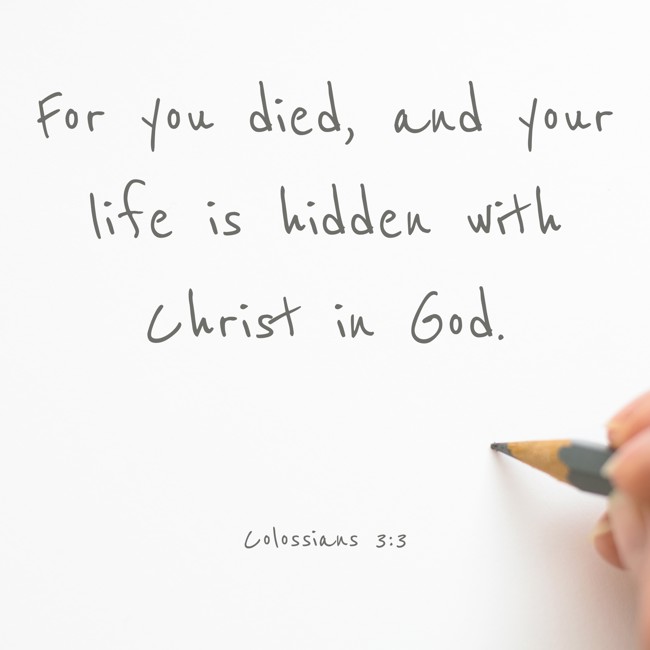 For you died, and your
life is hidden with
Christ in God.
Colossians 3:3